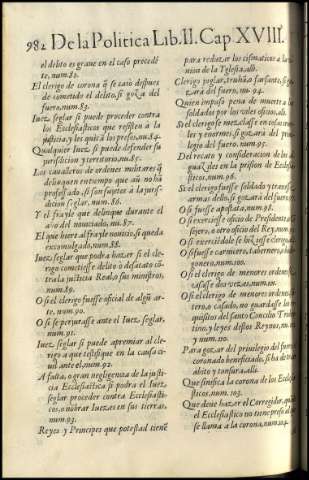 982 De la Politica Lib. II. Cap. XVIII.
el delito es graue en el caso procedẽ
te, num.82.
El clerigo de corona q̃ se casò despues
de cometido el delito, si goza del
fuero, num.83.
Iuez seglar si puede proceder contra
los Eclesiasticos que resisten à la
justicia, y les quitã los presos, nu.84.
Qualquier Iuez, si puede defender su
jurisdicion y territorio, nu.85.
Los caualleros de ordenes militares q̃
delinquen entretempo que aũ no hã
professado, si son sujetos à la juris-
dicion seglar, num.86.
Y el frayle que delinque durante el
año del nouiciado, nu.87.
El que hiere al frayle nouicio, si queda
excomulgado, num.88.
Iuez seglar que podra hazer si el cle-
rigo cometiesse delito ò desacato cõ-
tra la justicia Real, o sus ministros,
num.89.
O si el clerigo fuesse oficial de algũ ar-
te, num.90.
O si se perjurasse ante el Iuez seglar,
num.91.
Iuez seglar si puede apremiar al cle-
rigo a que testifique en la causa ci-
uil ante el, num.92.
A falta, o gran negligencia de la justi-
cia Eclesiastica si podra el Iuez
seglar proceder contra Eclesiasti-
cos, o nõbrar Iuezes en sus tierras,
num.93.
Reyes y Principes que potestad tienẽ
para reduzir los cismaticos a la
nion de la Yglesia, alli.
Clerigo juglar, truhã, o farsante, si go-
zarà del fuero, nu.94.
Quien impuso pena de muerte a
soldados por los tales oficios, alli.
Si el clerigo se mezclasse en cosas
les y enormes, si gozarà del priui-
legio del fuero, num.95.
Del recato y consideracion de los al-
guaziles en la prision de Eclesias-
ticos, num.96.
Si el clerigo fuesse soldado y traxes-
armas dello, si gozara del fuero,
O si fuesse apostata, num.98.
O si exerciesse oficio de Presidente o
sejero, o otro oficio del Rey, num.99.
O si exerciendole se hiziesse clerigo,
O si fuesse carnicero, tabernero, o bo-
gonero, num.100.
O si el clerigo de menores ordenes
casasse dos vezes, num.
O si el clerigo de menores ordenes
tero, o casado, no guardasse lo
dispuesto del santo Concilio Triden-
tino, y leyes destos Reynos, num.
y num.110.
Para gozar del priuilegio del fuero
coronado beneficiado, si ha de traer
abito y tonsura, alli.
Que significa la corona de los Eclesias-
ticos, num.103.
Que deue hazer el Corregidor, quando
el Eclesiastico no tiene preso al
se llama a la corona, num.104.